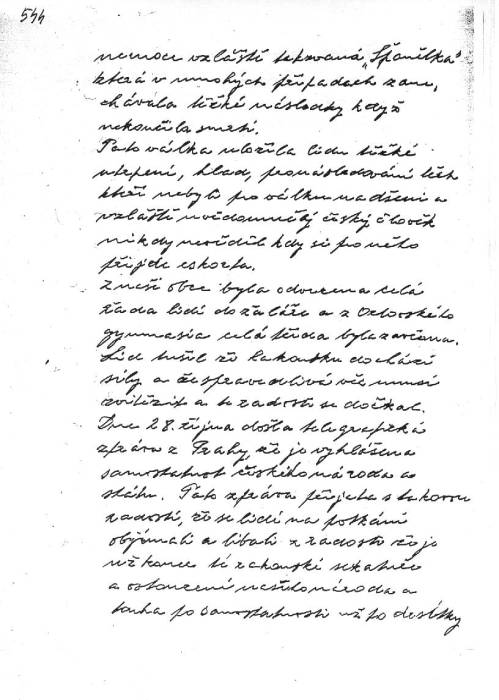 544
nemoce vzláště takzvaná „Španělka"
která v mnohých případech zane,
chávala těžké následky když
nekončila smrtí.
Tato válka uložila lidu těžké
utrpení, hlad, pronásledování těch
kteří nebyli pro válku nadšeni a
vzláště uvědomnělý český člověk
nikdy nevěděl kdy si pro něho
přijde eskorta.
Z naší obce byla odvezena celá
řada lidí do žaláře a z Orlovského
gymnasia celá třída byla zavřena.
Lid tušil že Rakousku dochází
síly a že spravedlivá věc musí
zvítězit a té radosti se dočkal.
Dne 28. října došla telegrafická
zpráva z Prahy, že je vyhlášena
samostatnost českého národa a
státu. Tato zpráva přijata s takovou
radostí, že se lidé na potkání
objímali a líbali z radosti že je
už konec té rakouské
a našeho národa a
touha po samostatnosti už po desítky